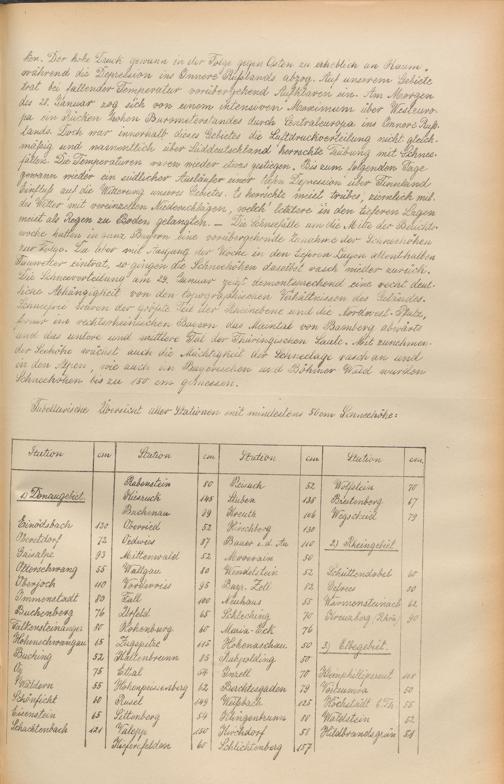 ten. Der hohe Druck gewann in der Folge gegen Osten zu erheblich an Raum,
während die Depression ins Innere Rußlands abzog. Auf unserem Gebiete
trat bei fallender Temperatur vorübergehend Aufklaren ein. Am Morgen
des 28. Januar zog sich von einem intensiven Maximum über Westeuro-
pa ein Rücken hohen Barometerstandes durch Centraleuropa ins Innere Ruß-
lands. Doch war innerhalb dieses Gebietes die Luftdruckverteilung nicht gleich-
mäßig und namentlich über Süddeutschland herrschte Trübung mit Schnee-
fällen. Die Temperaturen waren wieder etwas gestiegen. Bis zum folgenden Tage
gewann wieder ein südlicher Ausläufer einer tiefen Depression über Finnland
Einfluß auf die Witterung unseres Gebietes. Es herrschte meist trübes, ziemlich mil-
des Wetter mit vereinzelten Niederschlägen, welch' letztere in den tieferen Lagen
meist als Regen zu Boden gelangten. — Die Schneefälle um die Mitte der Berichts-
woche hatten in ganz Bayern eine vorübergehende Zunahme der Schneehöhen
zur Folge. Da aber mit Ausgang der Woche in den tieferen Lagen allenthalben
Tauwetter eintrat, so gingen die Schneehöhen daselbst rasch wieder zurück.
Die Schneeverteilung am 29. Januar zeigt dementsprechend eine recht deut-
liche Abhängigkeit von den topographischen Verhältnissen des Geländes.
Schneefrei waren der größte Teil der Rheinebene und die Nordwest-Pfalz,
ferner im rechtsrheinischen Bayern das Maintal von Bamberg abwärts
und das untere und mittlere Tal der Thüringischen Saale. Mit zunehmen-
der Seehöhe wächst auch die Mächtigkeit der Schneelage rasch an und
in den Alpen, wie auch im Bayerischen und Böhmer Wald wurden
Schneehöhen bis zu 150 cm gemessen.
Tabellarische Übersicht aller Stationen mit mindestens 50 cm Schneehöhe:
Station cm Station cm Station cm Station cm
1) Donaugebiet.
Einödsbach 120
Oberstdorf 72
Balsalpe 93
Otterschwang 55
Oberjoch 110
Immenstadt 80
Buchenberg 76
Falkensteinanger 80
Hohenschwangau 65
Buching 52
Oy 75
Waldern 55
Schönficht 60
Eisenstein 65
Schachtenbach 121
Rabenstein 80
Buchenau 89
Oberried 52
Mittenwald 52
Wallgau 80
Vorderriss 95
Fall 100
Hohenburg 60
Zugspitze 115
Kaltenbrunn 85
Ettal 54
Hohenpeissenberg 62
Valepp 150
Kiefersfelden 60
Reisach 52
Stuben 135
Kreuth 106
Hirschberg 130
Bauer i. d. Au 110
Wendelstein 52
Bayr. Zell 82
Neuhaus 55
Schleching 70
Maria-Eck 76
Hohenaschau 50
Ruhpolding 50
Inzell 70
Berchtesgaden 79
Weißbach 125
Klingenbrunn 80
Kirchdorf 55
Schlichtenberg 157
Wolfstein 70
Breitenberg 67
Wegscheid 79
2) Rheingebiet.
Schüttendobel 60
Gefrees 50
Warmensteinach 62
Kreuzberg, Rhön, 90
3) Elbegebiet.
Voitsumra 50
Höchstädt b. Th. 55
Waldstein 62
Hildbrandsgrün 54